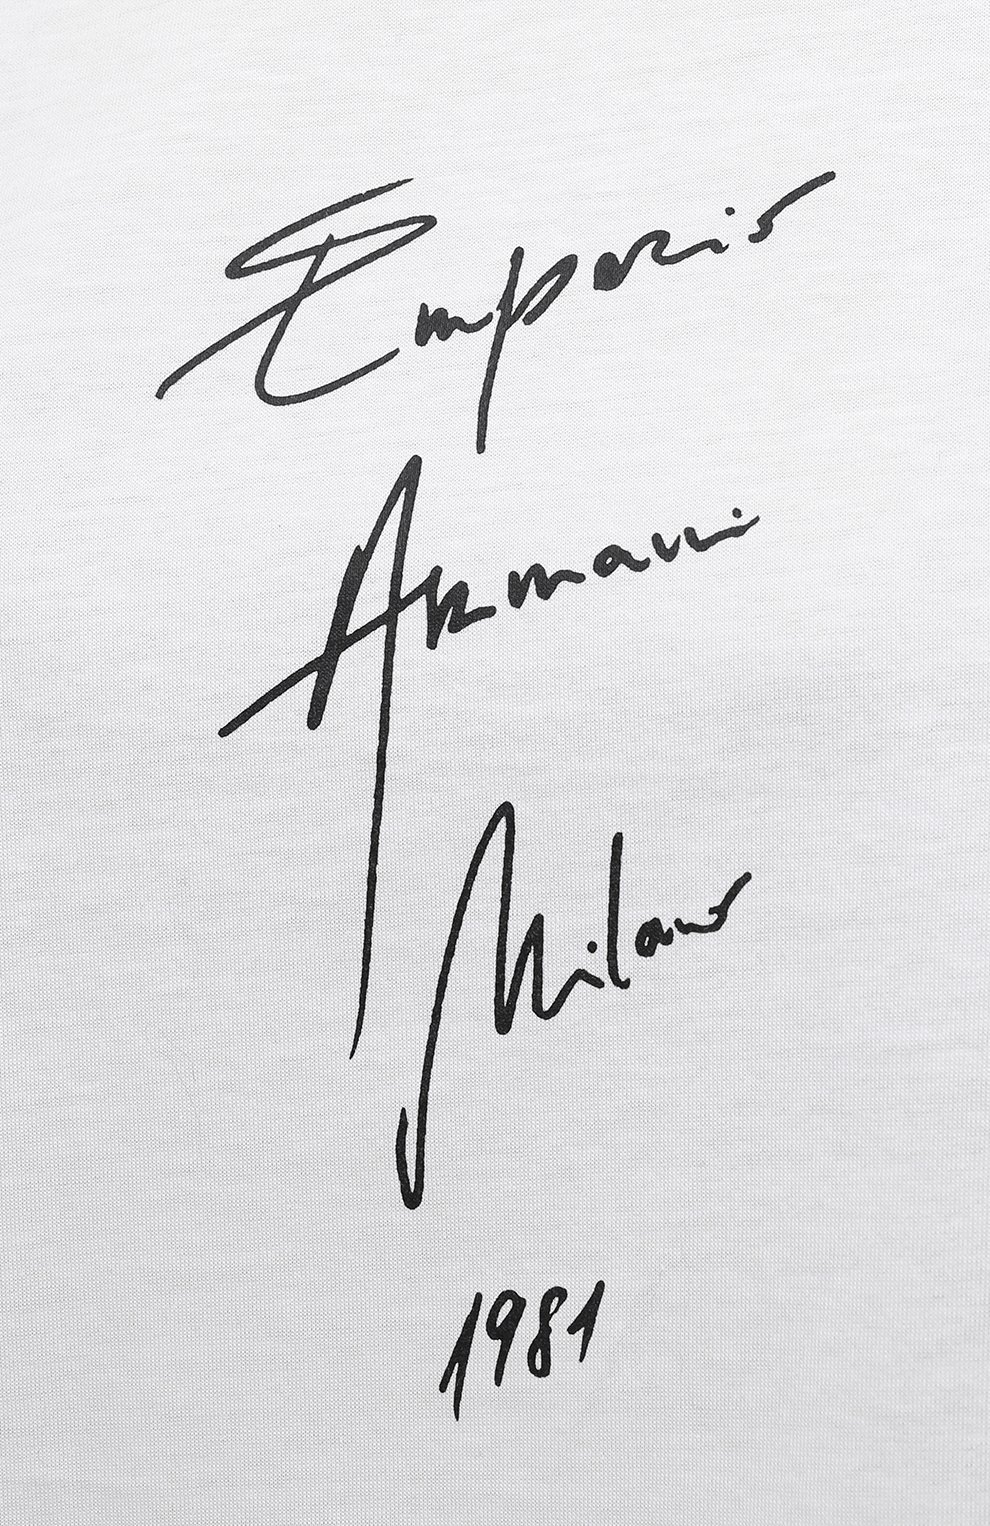 Emporio
Armani
Milano
1981